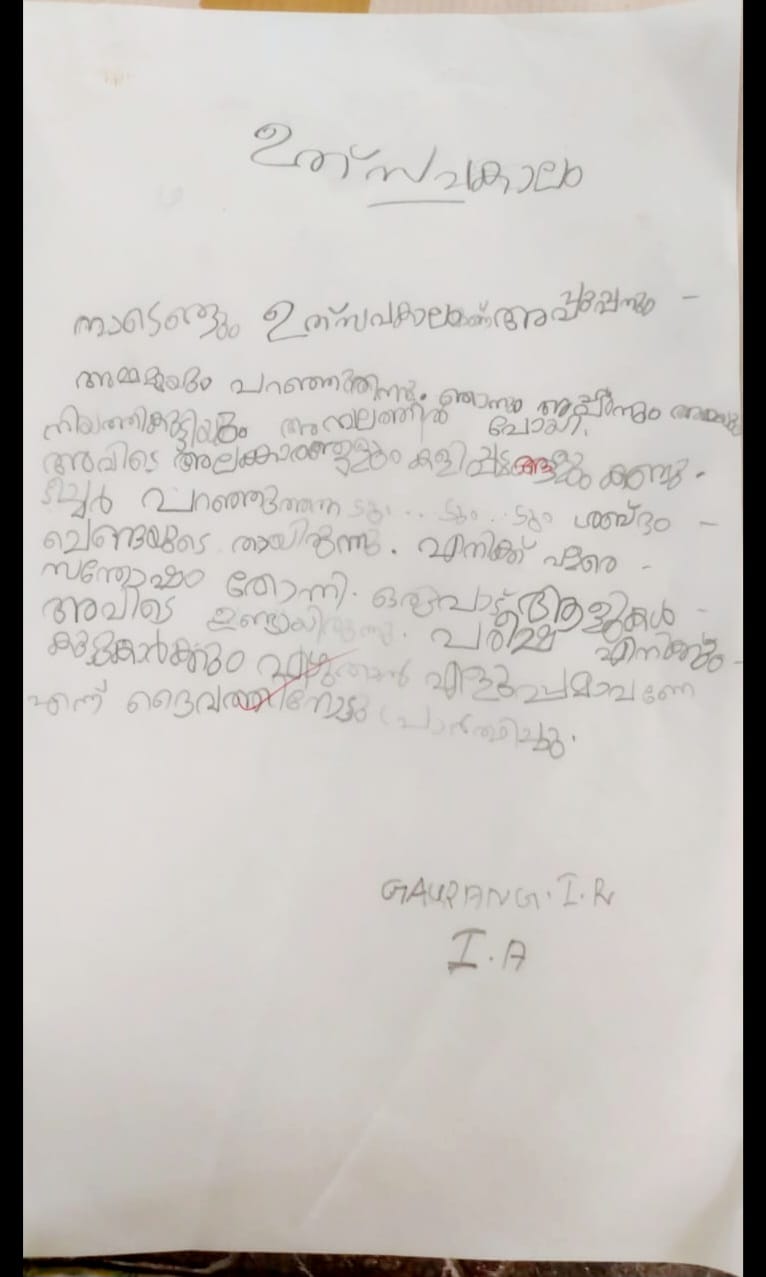 ഉത്സവകാലം
നാടെങ്ങും ഉത്സവകാലമാണ് അപ്പൂപ്പനും -
അമ്മമ്മയും പറഞ്ഞിരുന്നു. ഞാനും അച്ഛനും അമ്മയും
അമ്പലത്തിൽ പോയി.
അവിടെ അലങ്കാരങ്ങളും കളിപ്പാട്ടങ്ങളും കണ്ടു.
ടീച്ചർ പറഞ്ഞുതന്ന ടും... ടും.. ടും ശബ്ദം -
ചെണ്ടയുടെ തായിരുന്നു. എനിക്ക് വളരെ -
സന്തോഷം തോന്നി. ഒരുപാട് ആളുകൾ -
അവിടെ ഉണ്ടായിരുന്നു. പരീക്ഷ എനിക്കും -
കൂട്ടുകാർക്കും എഴുതാൻ എളുപ്പമാവണേ
എന്ന് ദൈവത്തിനോടു പ്രാർത്ഥിച്ചു.
GAURANG. I. R
I. A